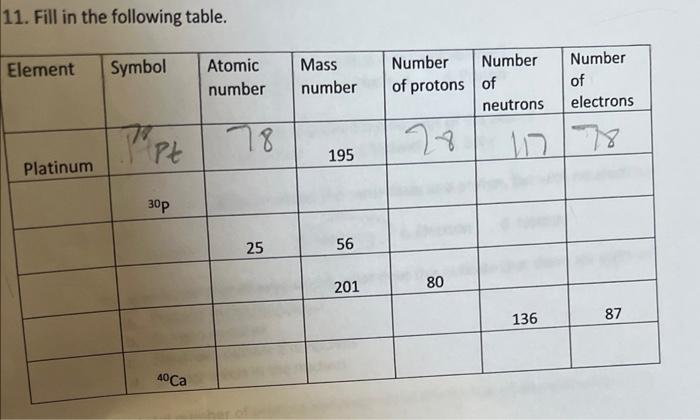 11. Fill in the following table.
Element Symbol Atomic number Mass number Number of protons Number of neutrons Number of electrons
Platinum Pt 78 195 78 117 78
30p
25 56
201 80
136 87
40Ca